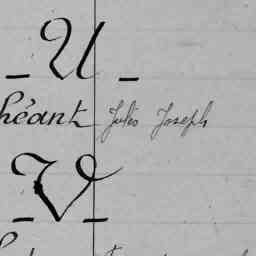 - U -
héant Jules Joseph
- V -